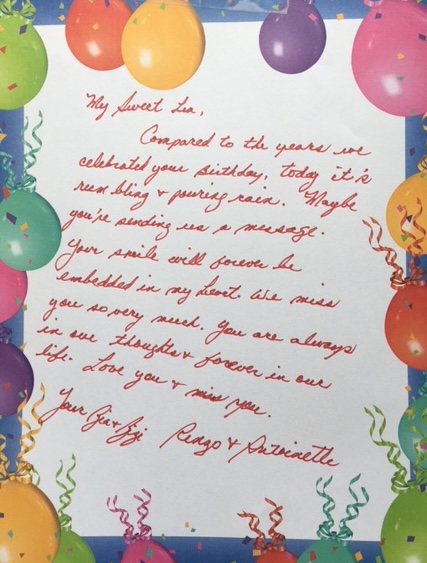 My Sweet Lea,
Compared to the years we
celebrated your Birthday, today it's
rumbling & pouring rain. Maybe
you're sending us a message.
Your smile will forever be
embedded in my heart. We miss
you so very much. You are always
in our thoughts & forever in our
life. Love you & miss you.
Your & Ringo & Antoinette